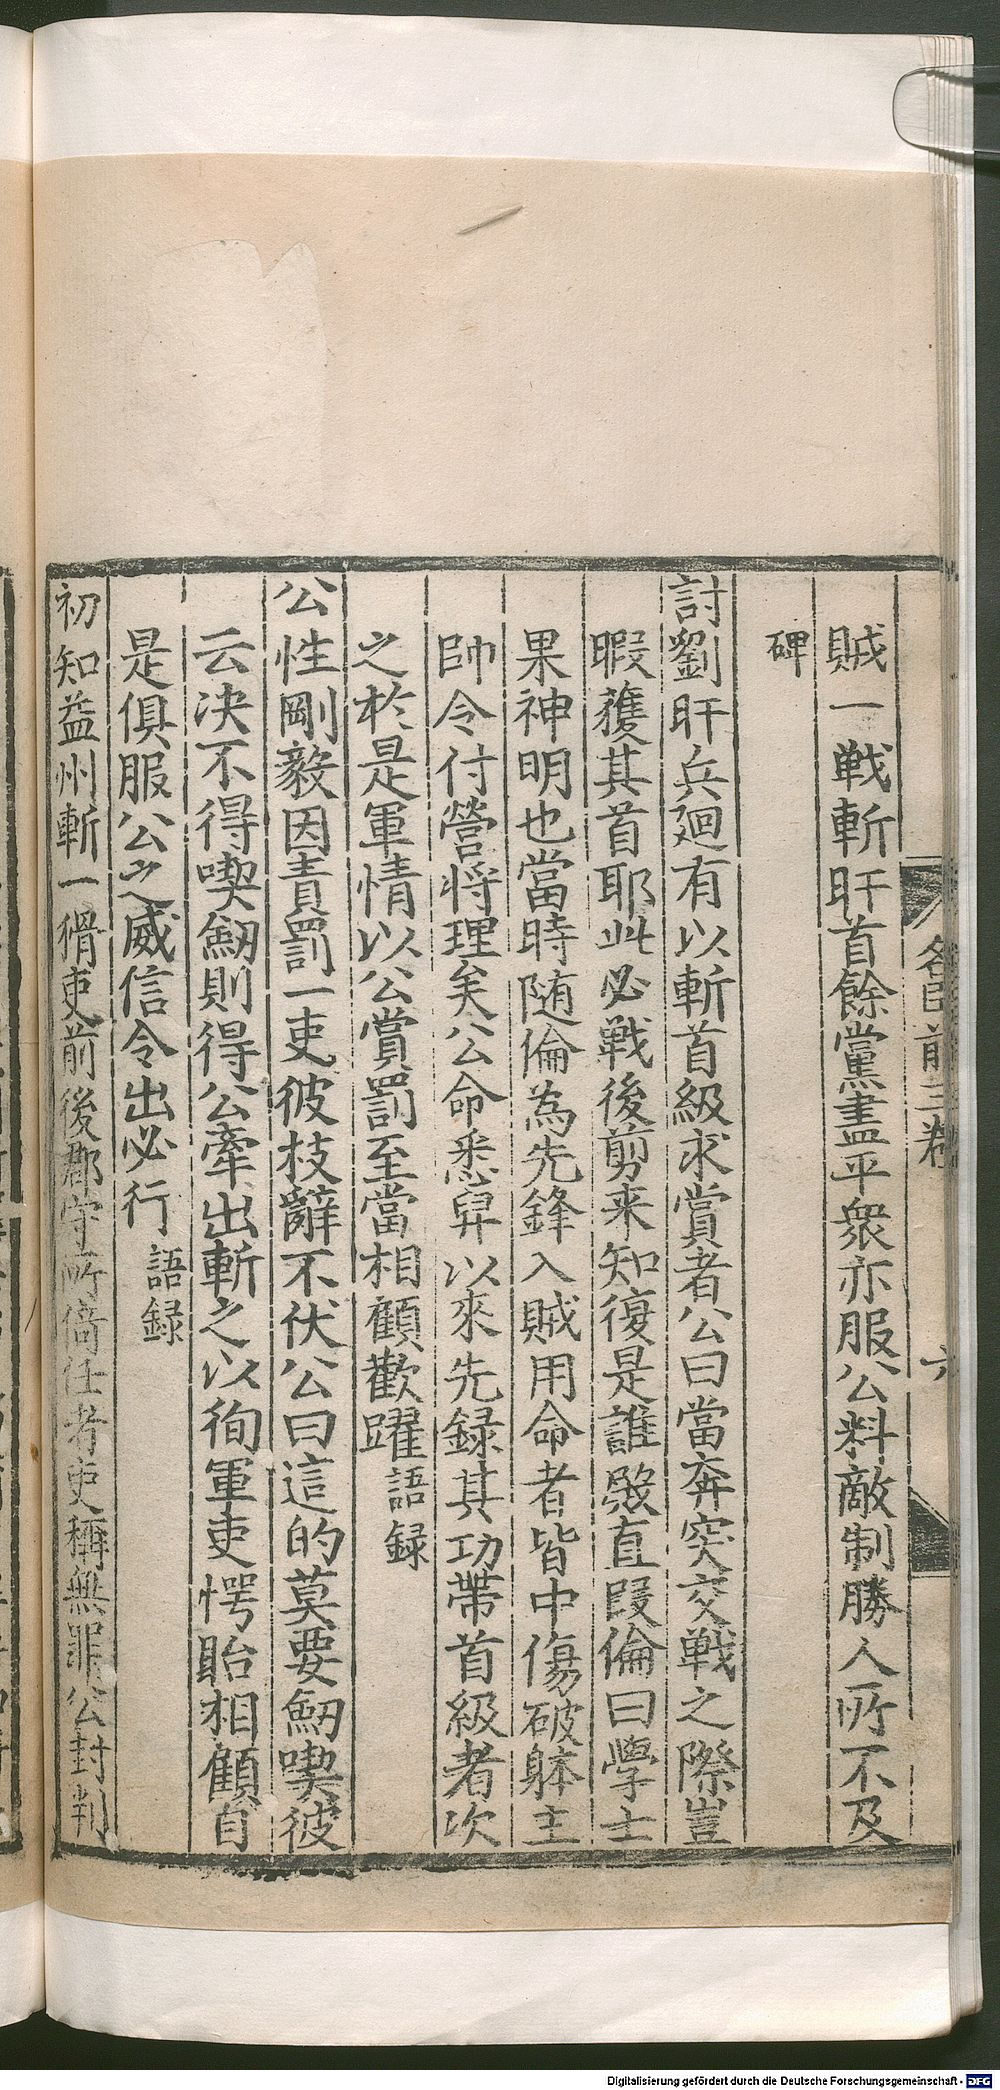 賊一戰斬盱首餘黨盡平衆亦服公料敵制勝人所不及
碑
討劉盱兵廻有以斬首級求賞者公曰當奔突交戰之際豈
暇獲其首耶此必戰後剪来知復是誰殺直叚倫曰學士
果神明也當時随倫為先鋒入賊用命者皆中傷破躰主
帥令付營将理矣公命悉舁以來先録其功帶首級者次
之於是軍情以公賞罰至當相顧歡躍 語録
公性剛毅因責罰一吏彼枝辭不伏公曰這的莫要劒喫彼
云决不得喫劒則得公牽出斬之以徇軍吏愕眙相顧自
是俱服公之威信令出必行 語録
初知益州斬一猾吏前後郡守所倚任者吏稱無罪公封判
名臣前三卷
六
Digitalisierung gefördert durch die Deutsche Forschungsgemeinschaft - DFG